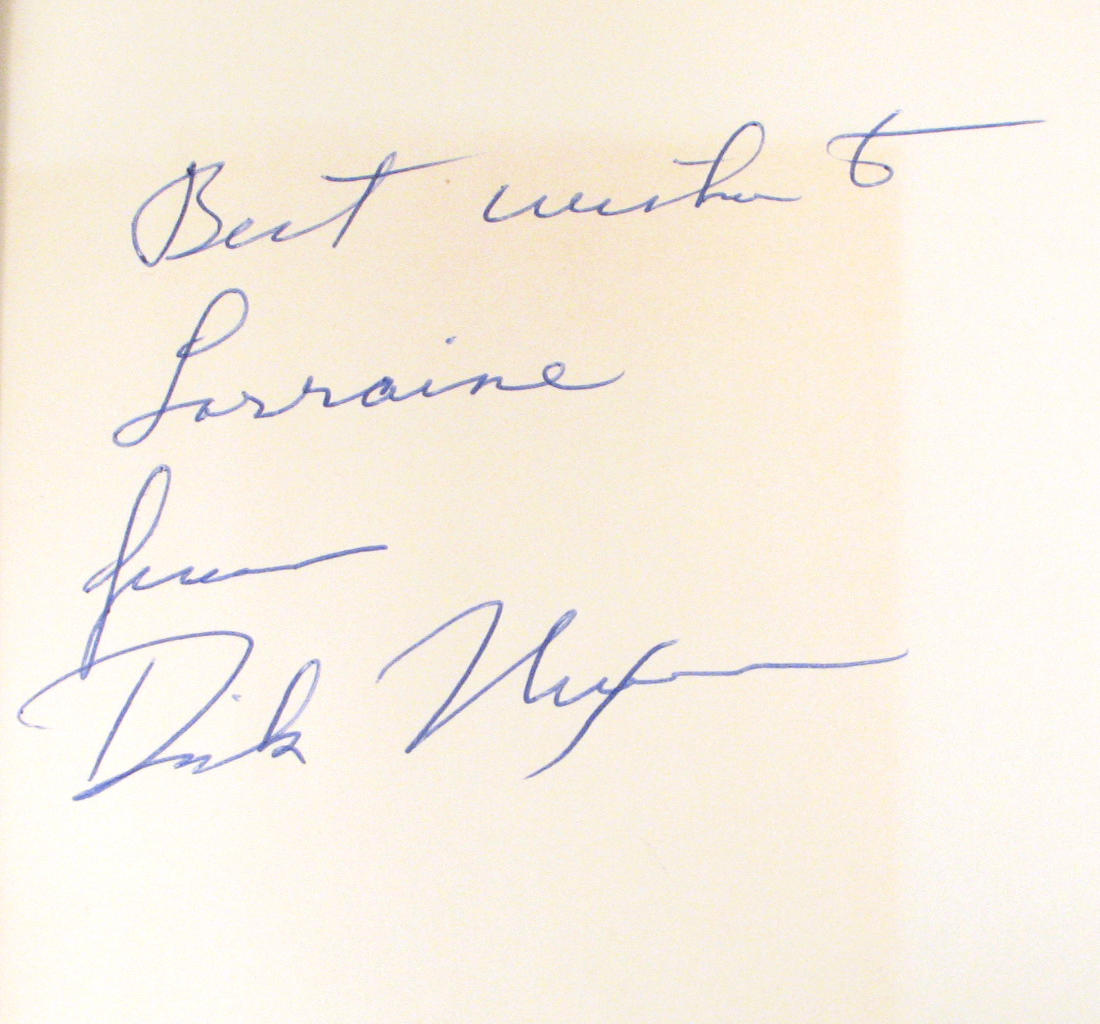 Best wishes to
Lorraine
from
Dick Nixon